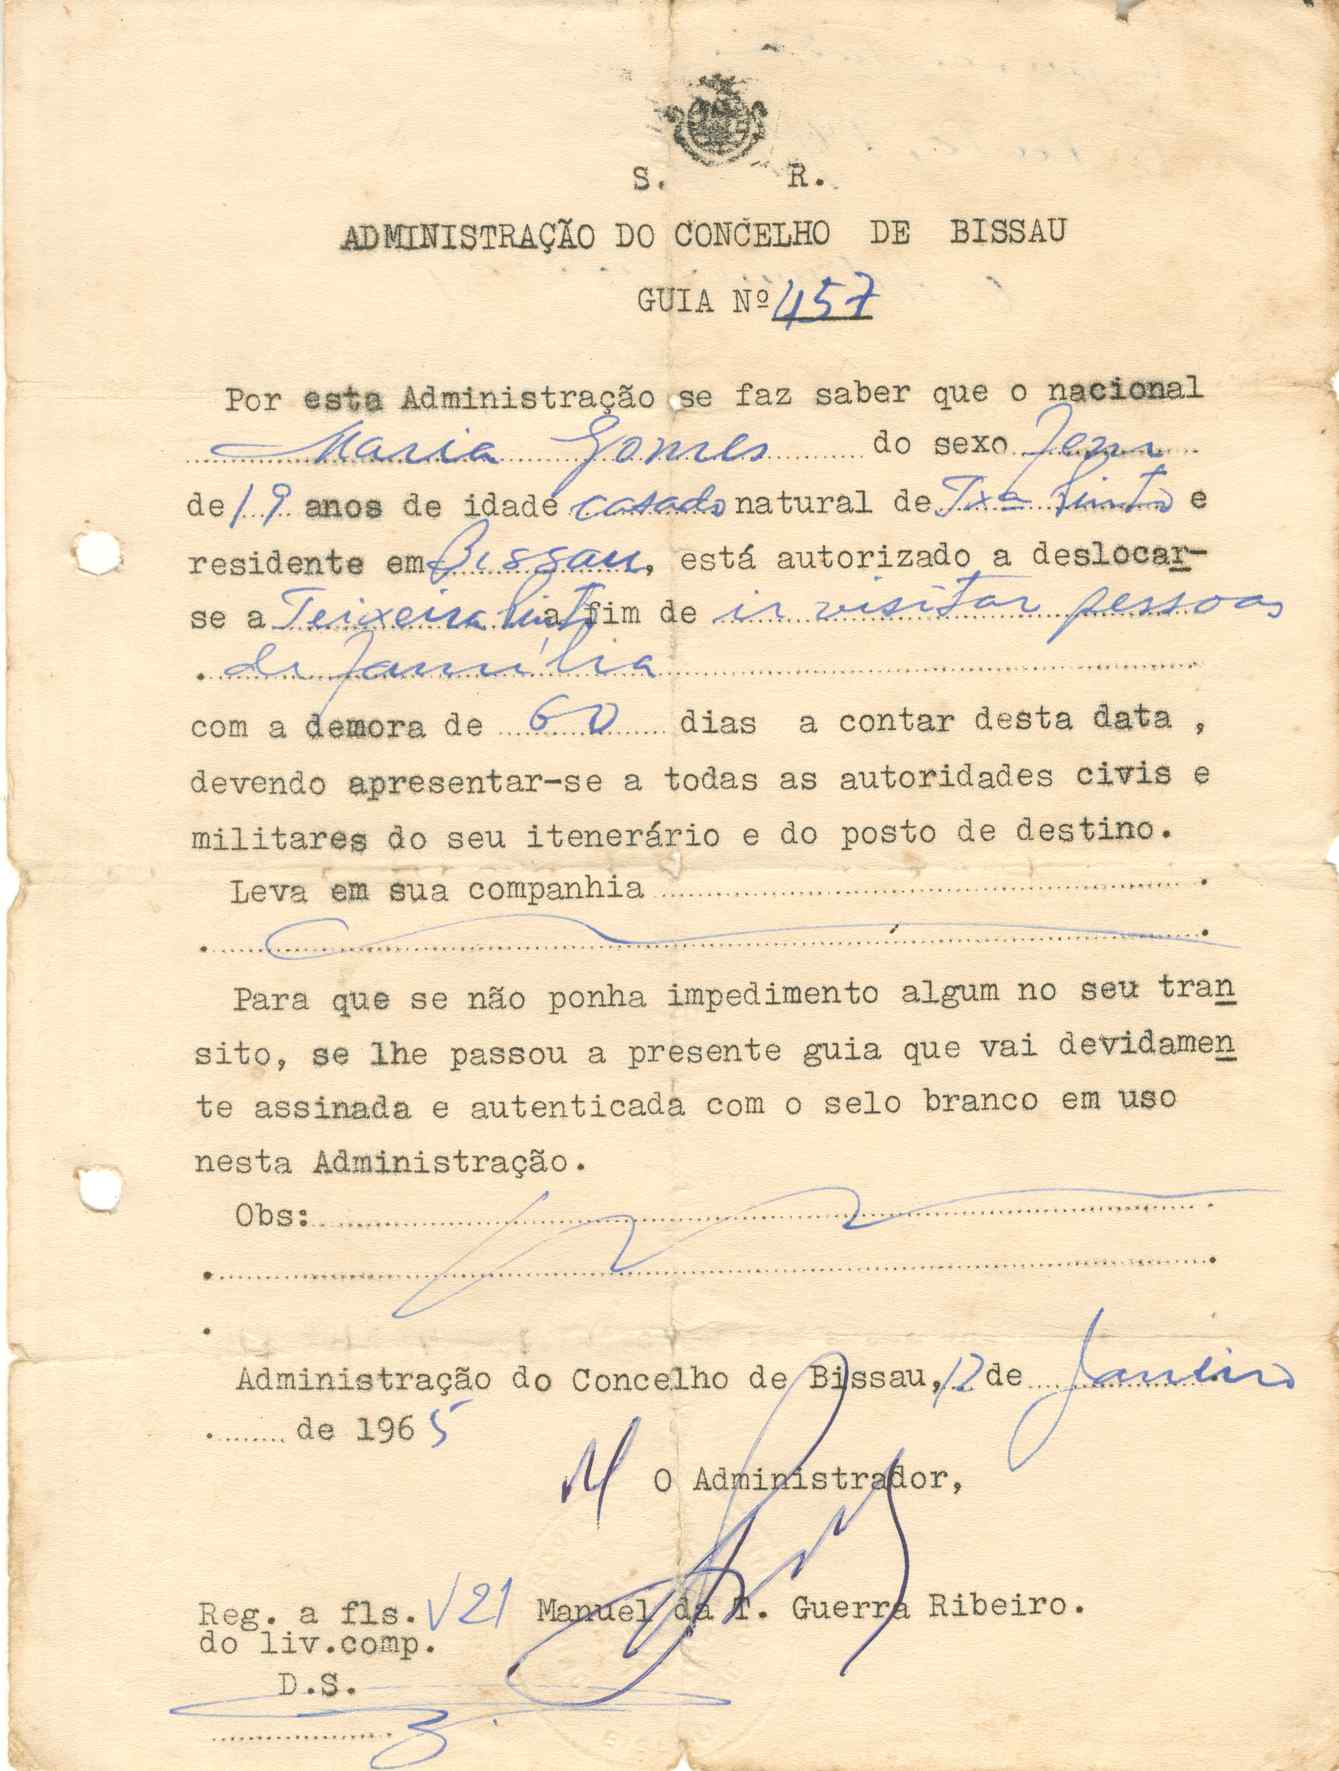 S. R.
ADMINISTRAÇÃO DO CONCELHO DE BISSAU
GUIA Nº 457
Por esta Administração se faz saber que o nacional
Maria Gomes do sexo Fem
de 19 anos de idade casado natural de Txª Pinto e
residente em Bissau, está autorizado a deslocar-
se a Teixeira Pinto a fim de ir visitar pessoas
de família
com a demora de 60 dias a contar desta data ,
devendo apresentar-se a todas as autoridades civis e
militares do seu itenerário e do posto de destino.
Leva em sua companhia
Para que se não ponha impedimento algum no seu tran
sito, se lhe passou a presente guia que vai devidamen
te assinada e autenticada com o selo branco em uso
nesta Administração.
Obs:
Administração do Concelho de Bissau, 12 de Janeiro
de 1965
O Administrador,
Reg. a fls. V21 Manuel da T. Guerra Ribeiro.
do liv.comp.
D.S.